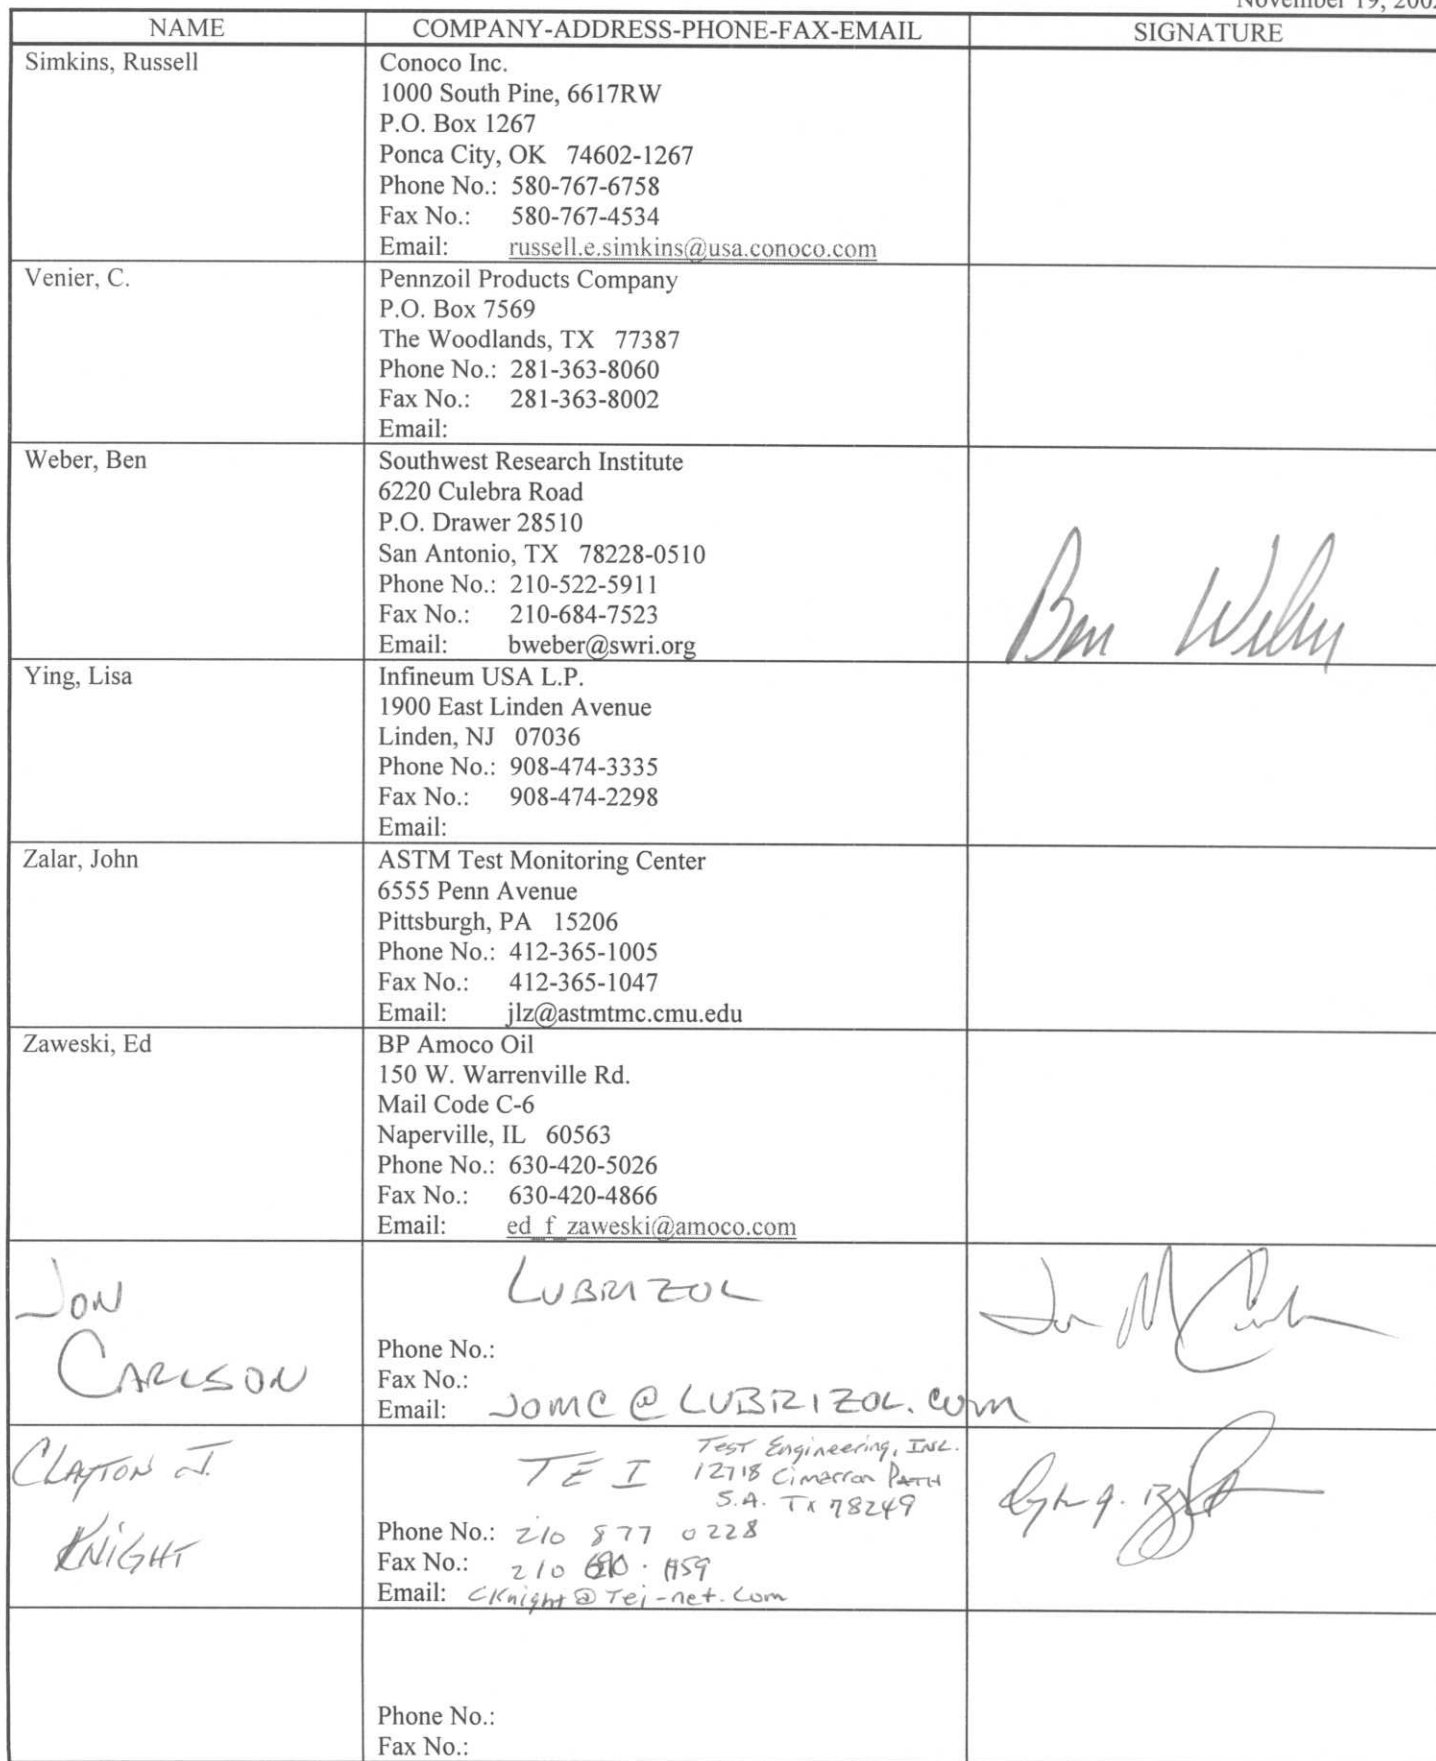 November 19, 2002
NAME COMPANY-ADDRESS-PHONE-FAX-EMAIL SIGNATURE
Simkins, Russell
Conoco Inc.
1000 South Pine, 6617RW
P.O. Box 1267
Ponca City, OK 74602-1267
Phone No.: 580-767-6758
Fax No.: 580-767-4534
Email: russell.e.simkins@usa.conoco.com
Venier, C.
Pennzoil Products Company
P.O. Box 7569
The Woodlands, TX 77387
Phone No.: 281-363-8060
Fax No.: 281-363-8002
Email:
Weber, Ben
Southwest Research Institute
6220 Culebra Road
P.O. Drawer 28510
San Antonio, TX 78228-0510
Phone No.: 210-522-5911
Fax No.: 210-684-7523
Email: bweber@swri.org
Ben Weber
Ying, Lisa
Infineum USA L.P.
1900 East Linden Avenue
Linden, NJ 07036
Phone No.: 908-474-3335
Fax No.: 908-474-2298
Email:
Zalar, John
ASTM Test Monitoring Center
6555 Penn Avenue
Pittsburgh, PA 15206
Phone No.: 412-365-1005
Fax No.: 412-365-1047
Email: jlz@astmtmc.cmu.edu
Zaweski, Ed
BP Amoco Oil
150 W. Warrenville Rd.
Mail Code C-6
Naperville, IL 60563
Phone No.: 630-420-5026
Fax No.: 630-420-4866
Email: ed_f_zaweski@amoco.com
JON
CARLSON
LUBRIZOL
Phone No.:
Fax No.:
Email: JOMC@LUBRIZOL.com
CLAYTON J.
KNIGHT
TEI
Test Engineering, INC.
12718 Cimarron PATH
S.A. TX 78249
Phone No.: 210 877 0228
Fax No.: 210
Email: CKnight@Tei-net.com
Phone No.:
Fax No.: